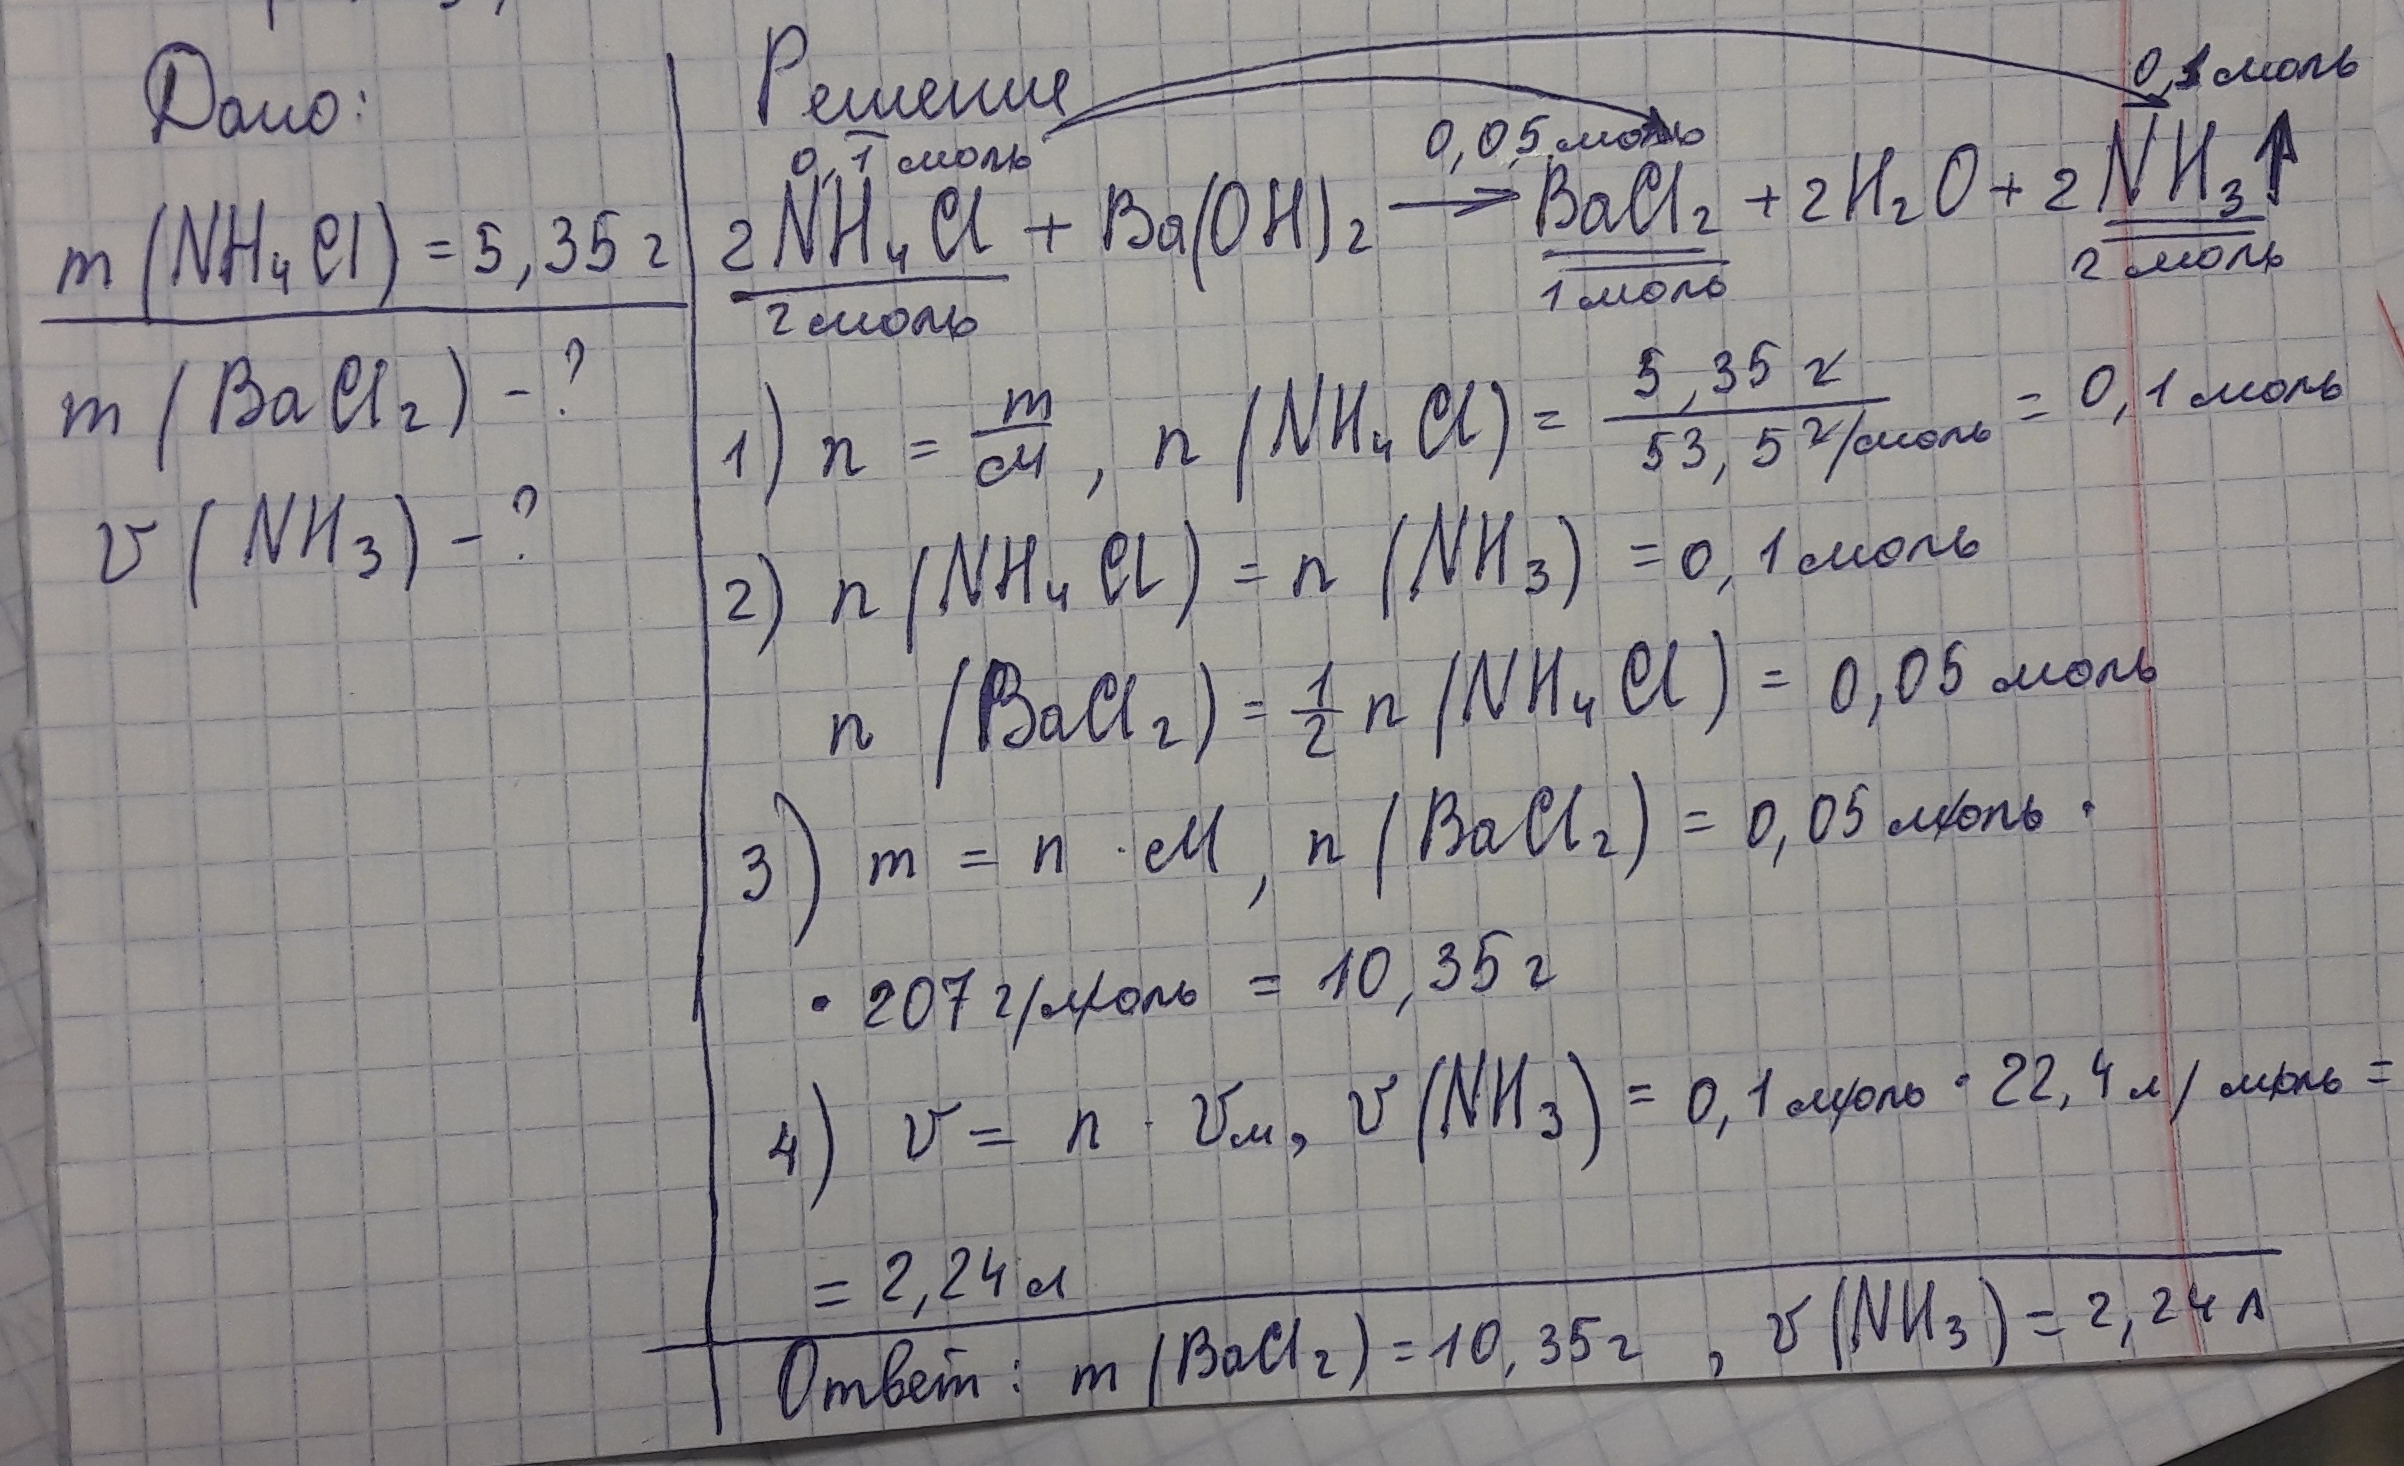 Дано:
m (NH₄Cl) = 5,35 г
m (BaCl₂) - ?
v (NH₃) - ?
Решение
0,1 моль 0,05 моль 0,1 моль
2NH₄Cl + Ba(OH)₂ → BaCl₂ + 2H₂O + 2NH₃↑
2 моль 1 моль 2 моль
1) n = m/M, n (NH₄Cl) = 5,35 г / 53,5 г/моль = 0,1 моль
2) n (NH₄Cl) = n (NH₃) = 0,1 моль
n (BaCl₂) = 1/2 n (NH₄Cl) = 0,05 моль
3) m = n · M, n (BaCl₂) = 0,05 моль ·
· 207 г/моль = 10,35 г
4) v = n · vм, v (NH₃) = 0,1 моль · 22,4 л/моль =
= 2,24 л
Ответ: m (BaCl₂) = 10,35 г, v (NH₃) = 2,24 л